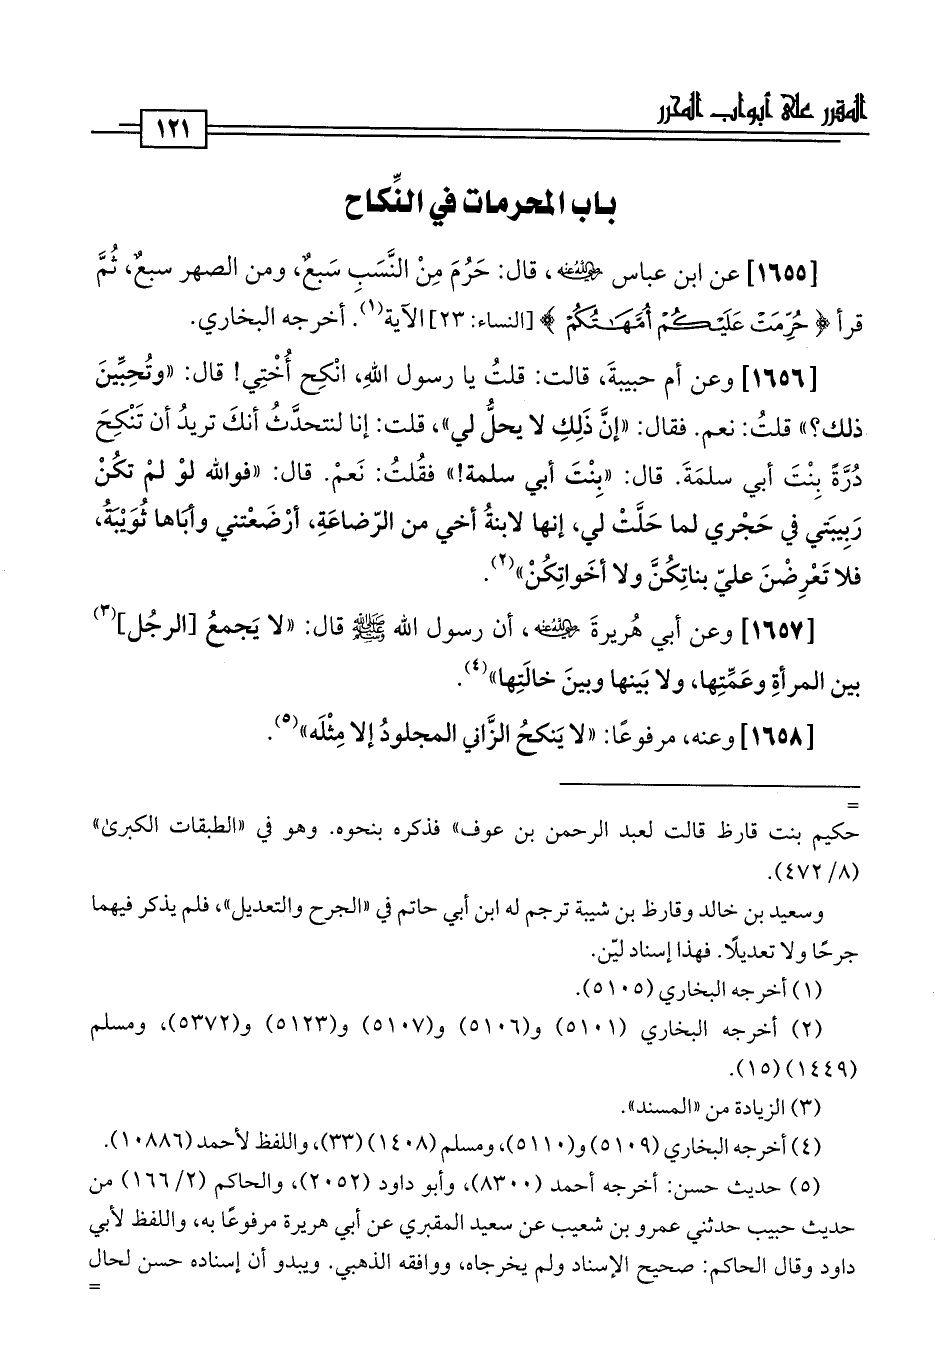 المقرر على أبواب المحرر
١٢١
باب المحرمات في النِّكاح
[١٦٥٥] عن ابن عباس رضي الله عنه، قال: حَرُمَ مِنْ النَّسَبِ سَبعٌ، ومن الصهر سبعٌ، ثُمَّ
قرأ ﴿حُرِّمَتْ عَلَيْكُمْ أُمَّهَـٰتُكُمْ﴾ [النساء: ٢٣] الآية(١). أخرجه البخاري.
[١٦٥٦] وعن أم حبيبةَ، قالت: قلتُ يا رسول اللهِ، انْكِح أُخْتِي! قال: «وتُحِبِّينَ
ذلك؟» قلتُ: نعم. فقال: «إنَّ ذَلِكِ لا يحلُّ لي»، قلت: إنا لنتحدَّثُ أنكَ تريدُ أن تَنْكِحَ
دُرَّةً بِنْتَ أبي سلمَةَ. قال: «بِنْتَ أبي سلمة!» فقُلتُ: نَعمْ. قال: «فوالله لوْ لمْ تكُنْ
رَبِيبَتي في حَجْري لما حَلَّتْ لي، إنها لابنةُ أخي من الرّضاعَةِ، أرْضَعْتني وأبَاها ثُوَيْبَةُ،
فلا تَعْرِضْنَ عليّ بناتِكُنَّ ولا أخَواتِكُنْ»(٢).
[١٦٥٧] وعن أبي هُريرةَ رضي الله عنه، أن رسول الله ﷺ قال: «لا يَجمعُ [الرجُل](٣)
بين المرأةِ وعَمَّتِها، ولا بَينها وبينَ خالَتِها»(٤).
[١٦٥٨] وعنه، مرفوعًا: «لا يَنكحُ الزَّاني المجلودُ إلا مِثْلَه»(٥).
=
حكيم بنت قارظ قالت لعبد الرحمن بن عوف» فذكره بنحوه. وهو في «الطبقات الكبرىٰ»
(٨/ ٤٧٢).
وسعيد بن خالد وقارظ بن شيبة ترجم له ابن أبي حاتم في «الجرح والتعديل»، فلم يذكر فيهما
جرحًا ولا تعديلًا. فهذا إسناد ليّن.
(١) أخرجه البخاري (٥١٠٥).
(٢) أخرجه البخاري (٥١٠١) و(٥١٠٦) و(٥١٠٧) و(٥١٢٣) و(٥٣٧٢)، ومسلم
(١٤٤٩) (١٥).
(٣) الزيادة من «المسند».
(٤) أخرجه البخاري (٥١٠٩) و(٥١١٠)، ومسلم (١٤٠٨) (٣٣)، واللفظ لأحمد (١٠٨٨٦).
(٥) حديث حسن: أخرجه أحمد (٨٣٠٠)، وأبو داود (٢٠٥٢)، والحاكم (٢/ ١٦٦) من
حديث حبيب حدثني عمرو بن شعيب عن سعيد المقبري عن أبي هريرة مرفوعًا به، واللفظ لأبي
داود وقال الحاكم: صحيح الإسناد ولم يخرجاه، ووافقه الذهبي. ويبدو أن إسناده حسن لحال
=